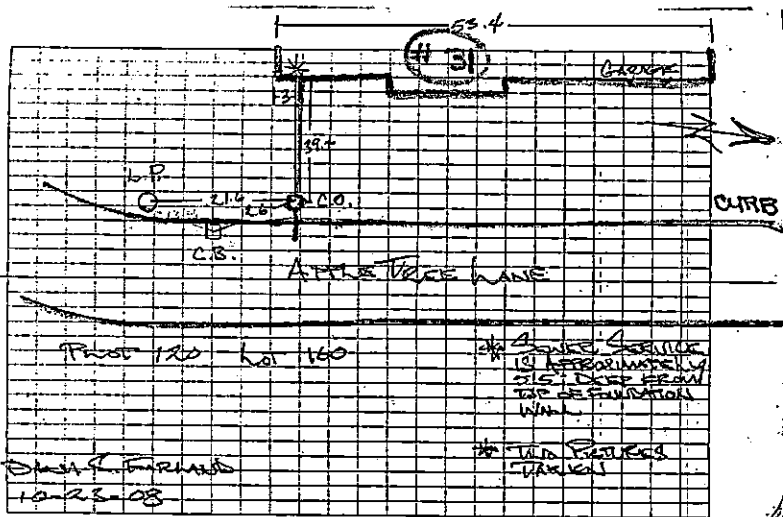 53.4
# 31
GARAGE
3
39.4
L.P.
21.6
C.O.
CURB
C.B.
APPLE TREE LANE
PLOT 120 LOT 160
* SEWER SERVICE
IS APPROXIMATELY
DEEP FROM
TOP OF FOUNDATION
WALL
* TWO PICTURES
TAKEN
10-23-08